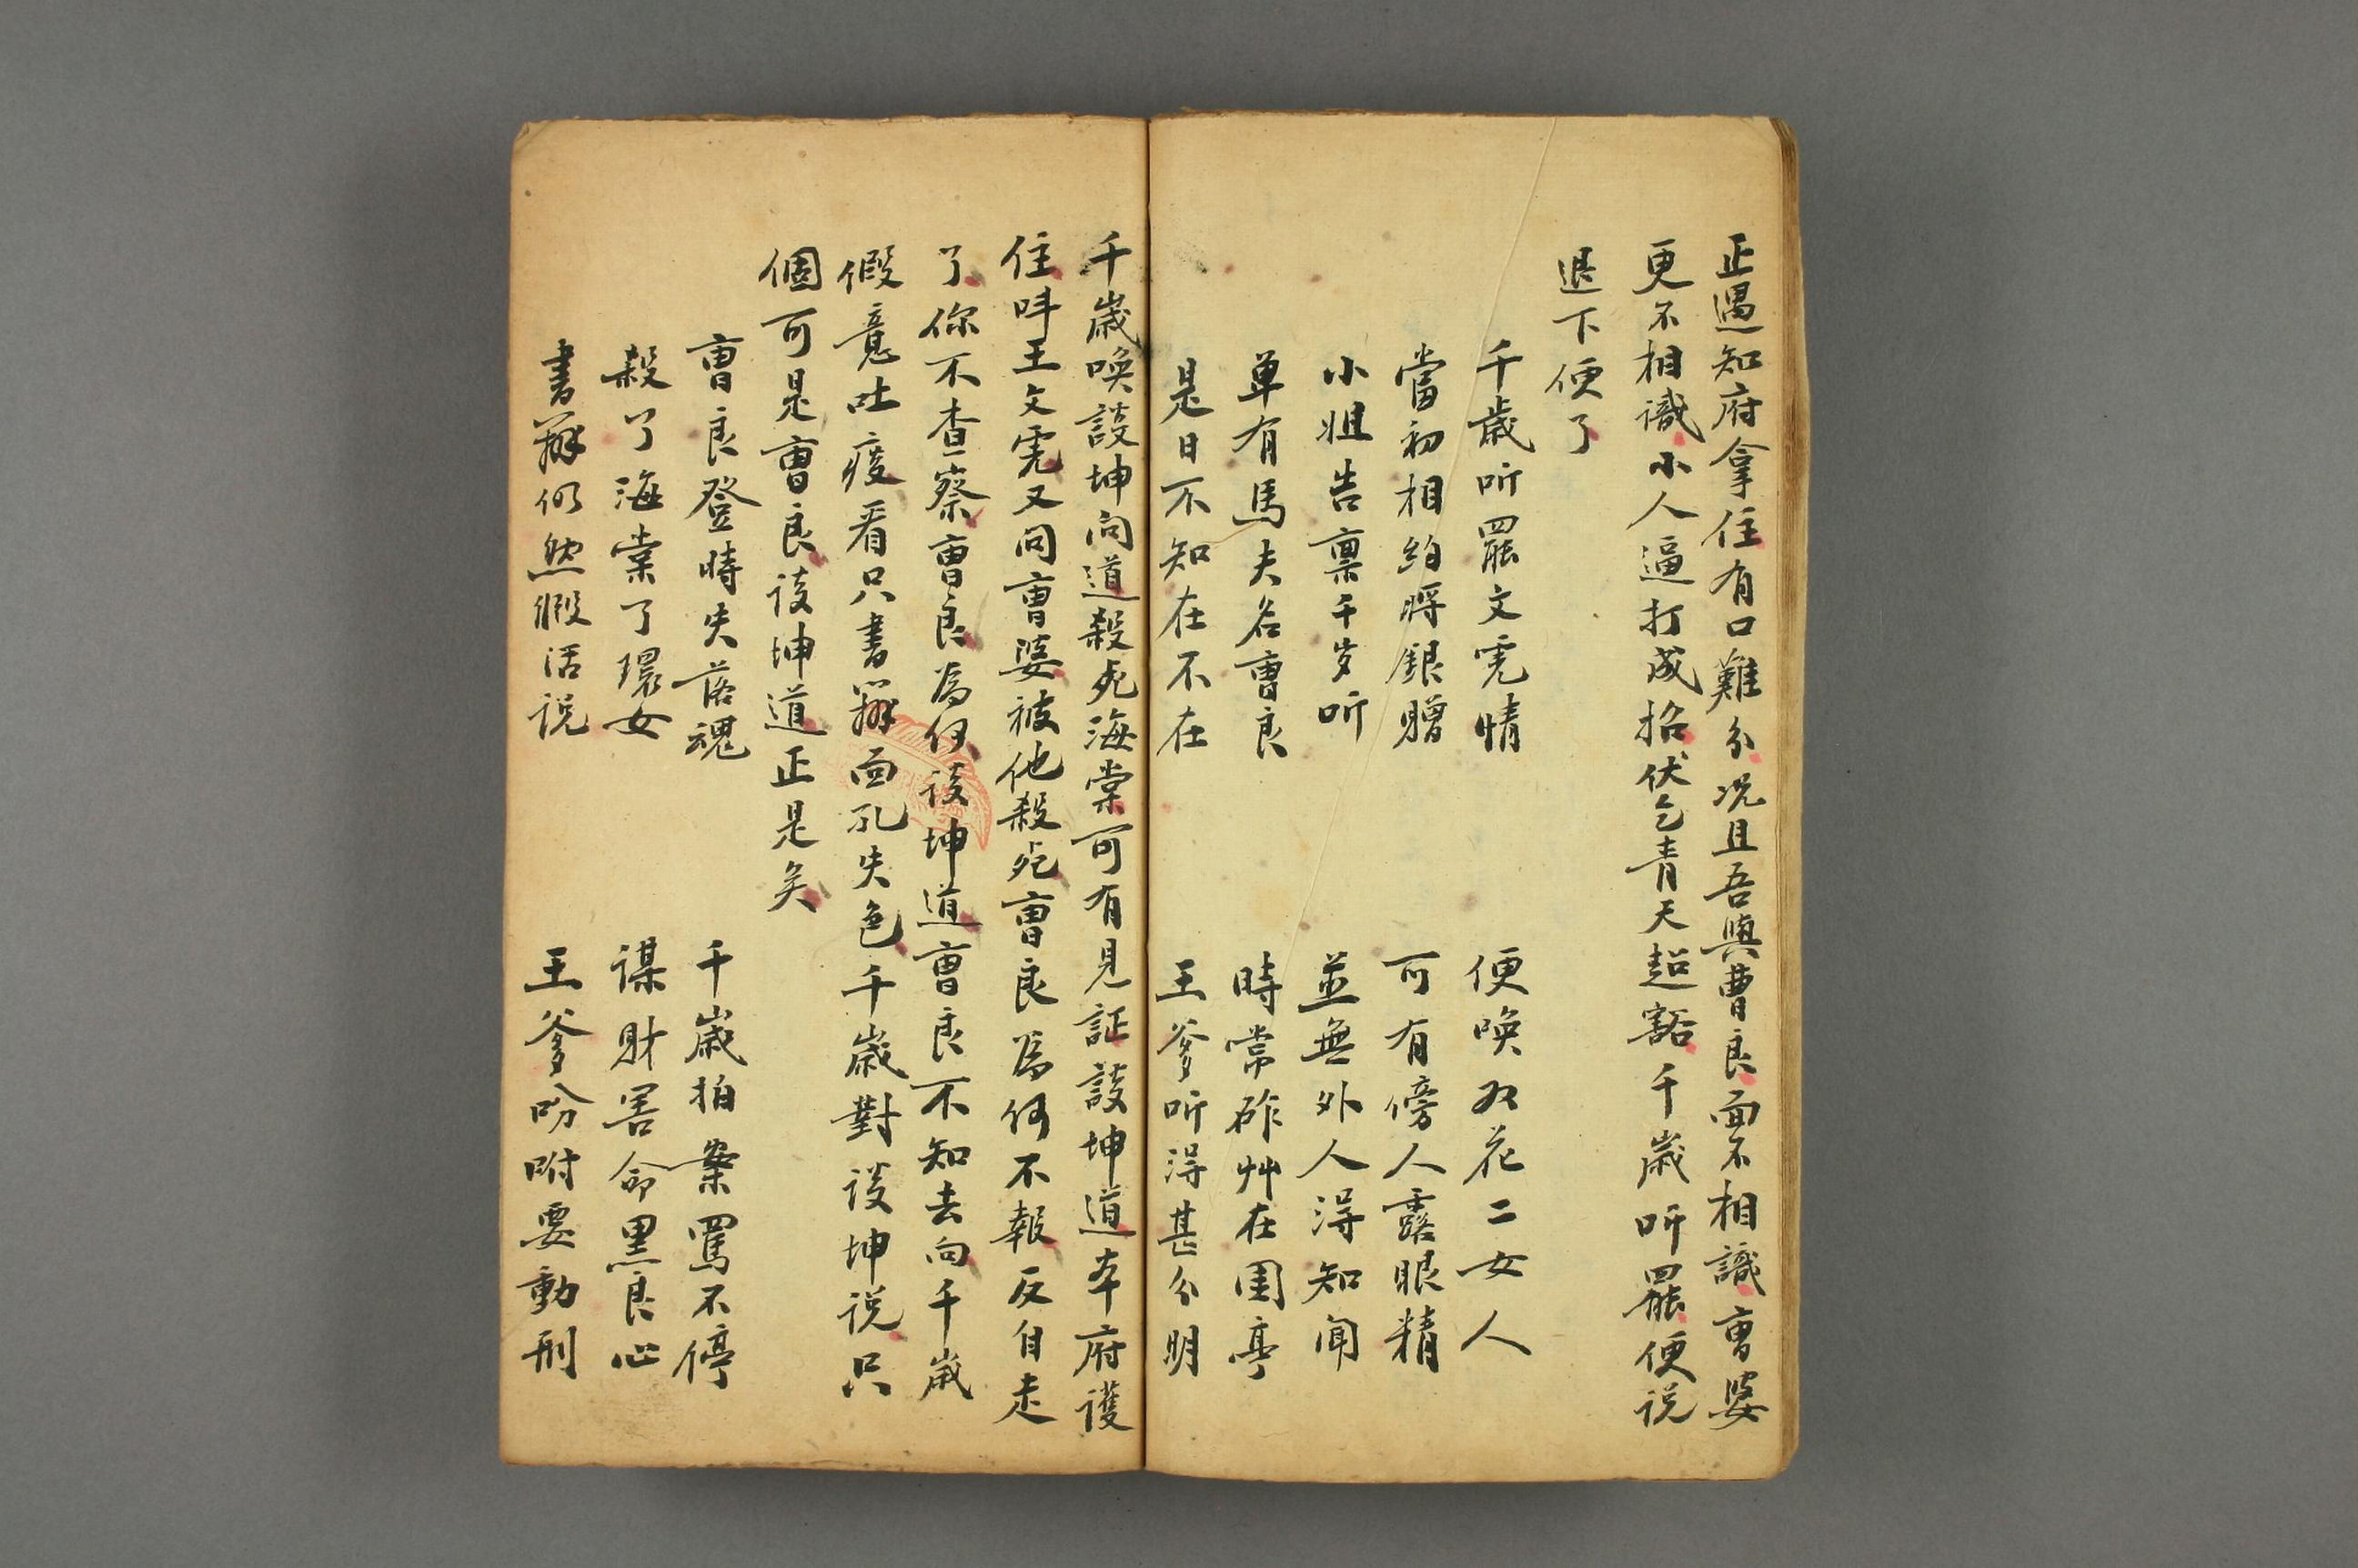 正遇知府拿住有口難分况且吾與曹良面不相識曺婆
更不相識小人逼打成招伏乞青天超豁千歲听罷便说
退下便了
千歲听罷文宪情　便喚双花二女人
當初相約將銀贈　可有傍人露眼精
小姐告禀千岁听　並無外人得知闻
单有馬夫名曺良　時常斫艸在園亭
是日不知在不在　王爹听得甚分明
千歲喚設坤问道殺死海棠可有見証設坤道本府護
住呌王文宪又问曺婆被他殺死曺良為何不報反自走
了你不查察曺良為何设坤道曺良不知去向千歲
假意吐痰看只書辦面孔失色千歲對设坤说只
個可是曺良设坤道正是矣
曺良登時失落魂　千歲拍案罵不停
殺了海棠了環女　谋財害命黑良心
書辦仍然假活说　王爹吩咐要動刑